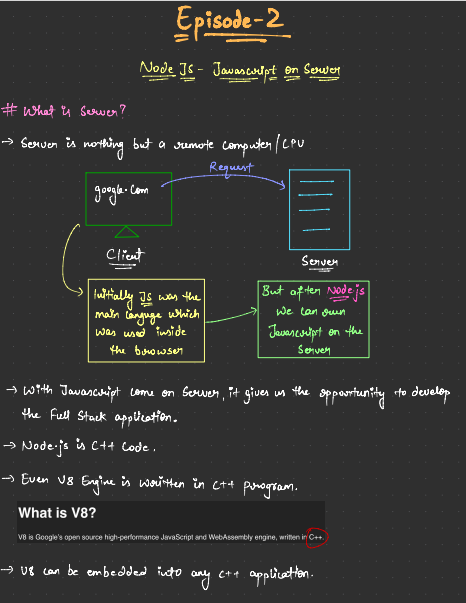 Episode-2
Node JS - Javascript on Server
# What is Server?
→ Server is nothing but a remote computer/CPU
Request
google.com
Client
Server
Initially JS was the
main languge which
was used inside
the browser
But after Node.js
we can run
Javascript on the
Server
→ With Javascript come on Server, it gives us the opportunity to develop
the Full Stack application.
→ Node.js is C++ Code.
→ Even V8 Engine is written in C++ program.
What is V8?
V8 is Google's open source high-performance JavaScript and WebAssembly engine, written in C++.
→ V8 can be embedded into any C++ application.